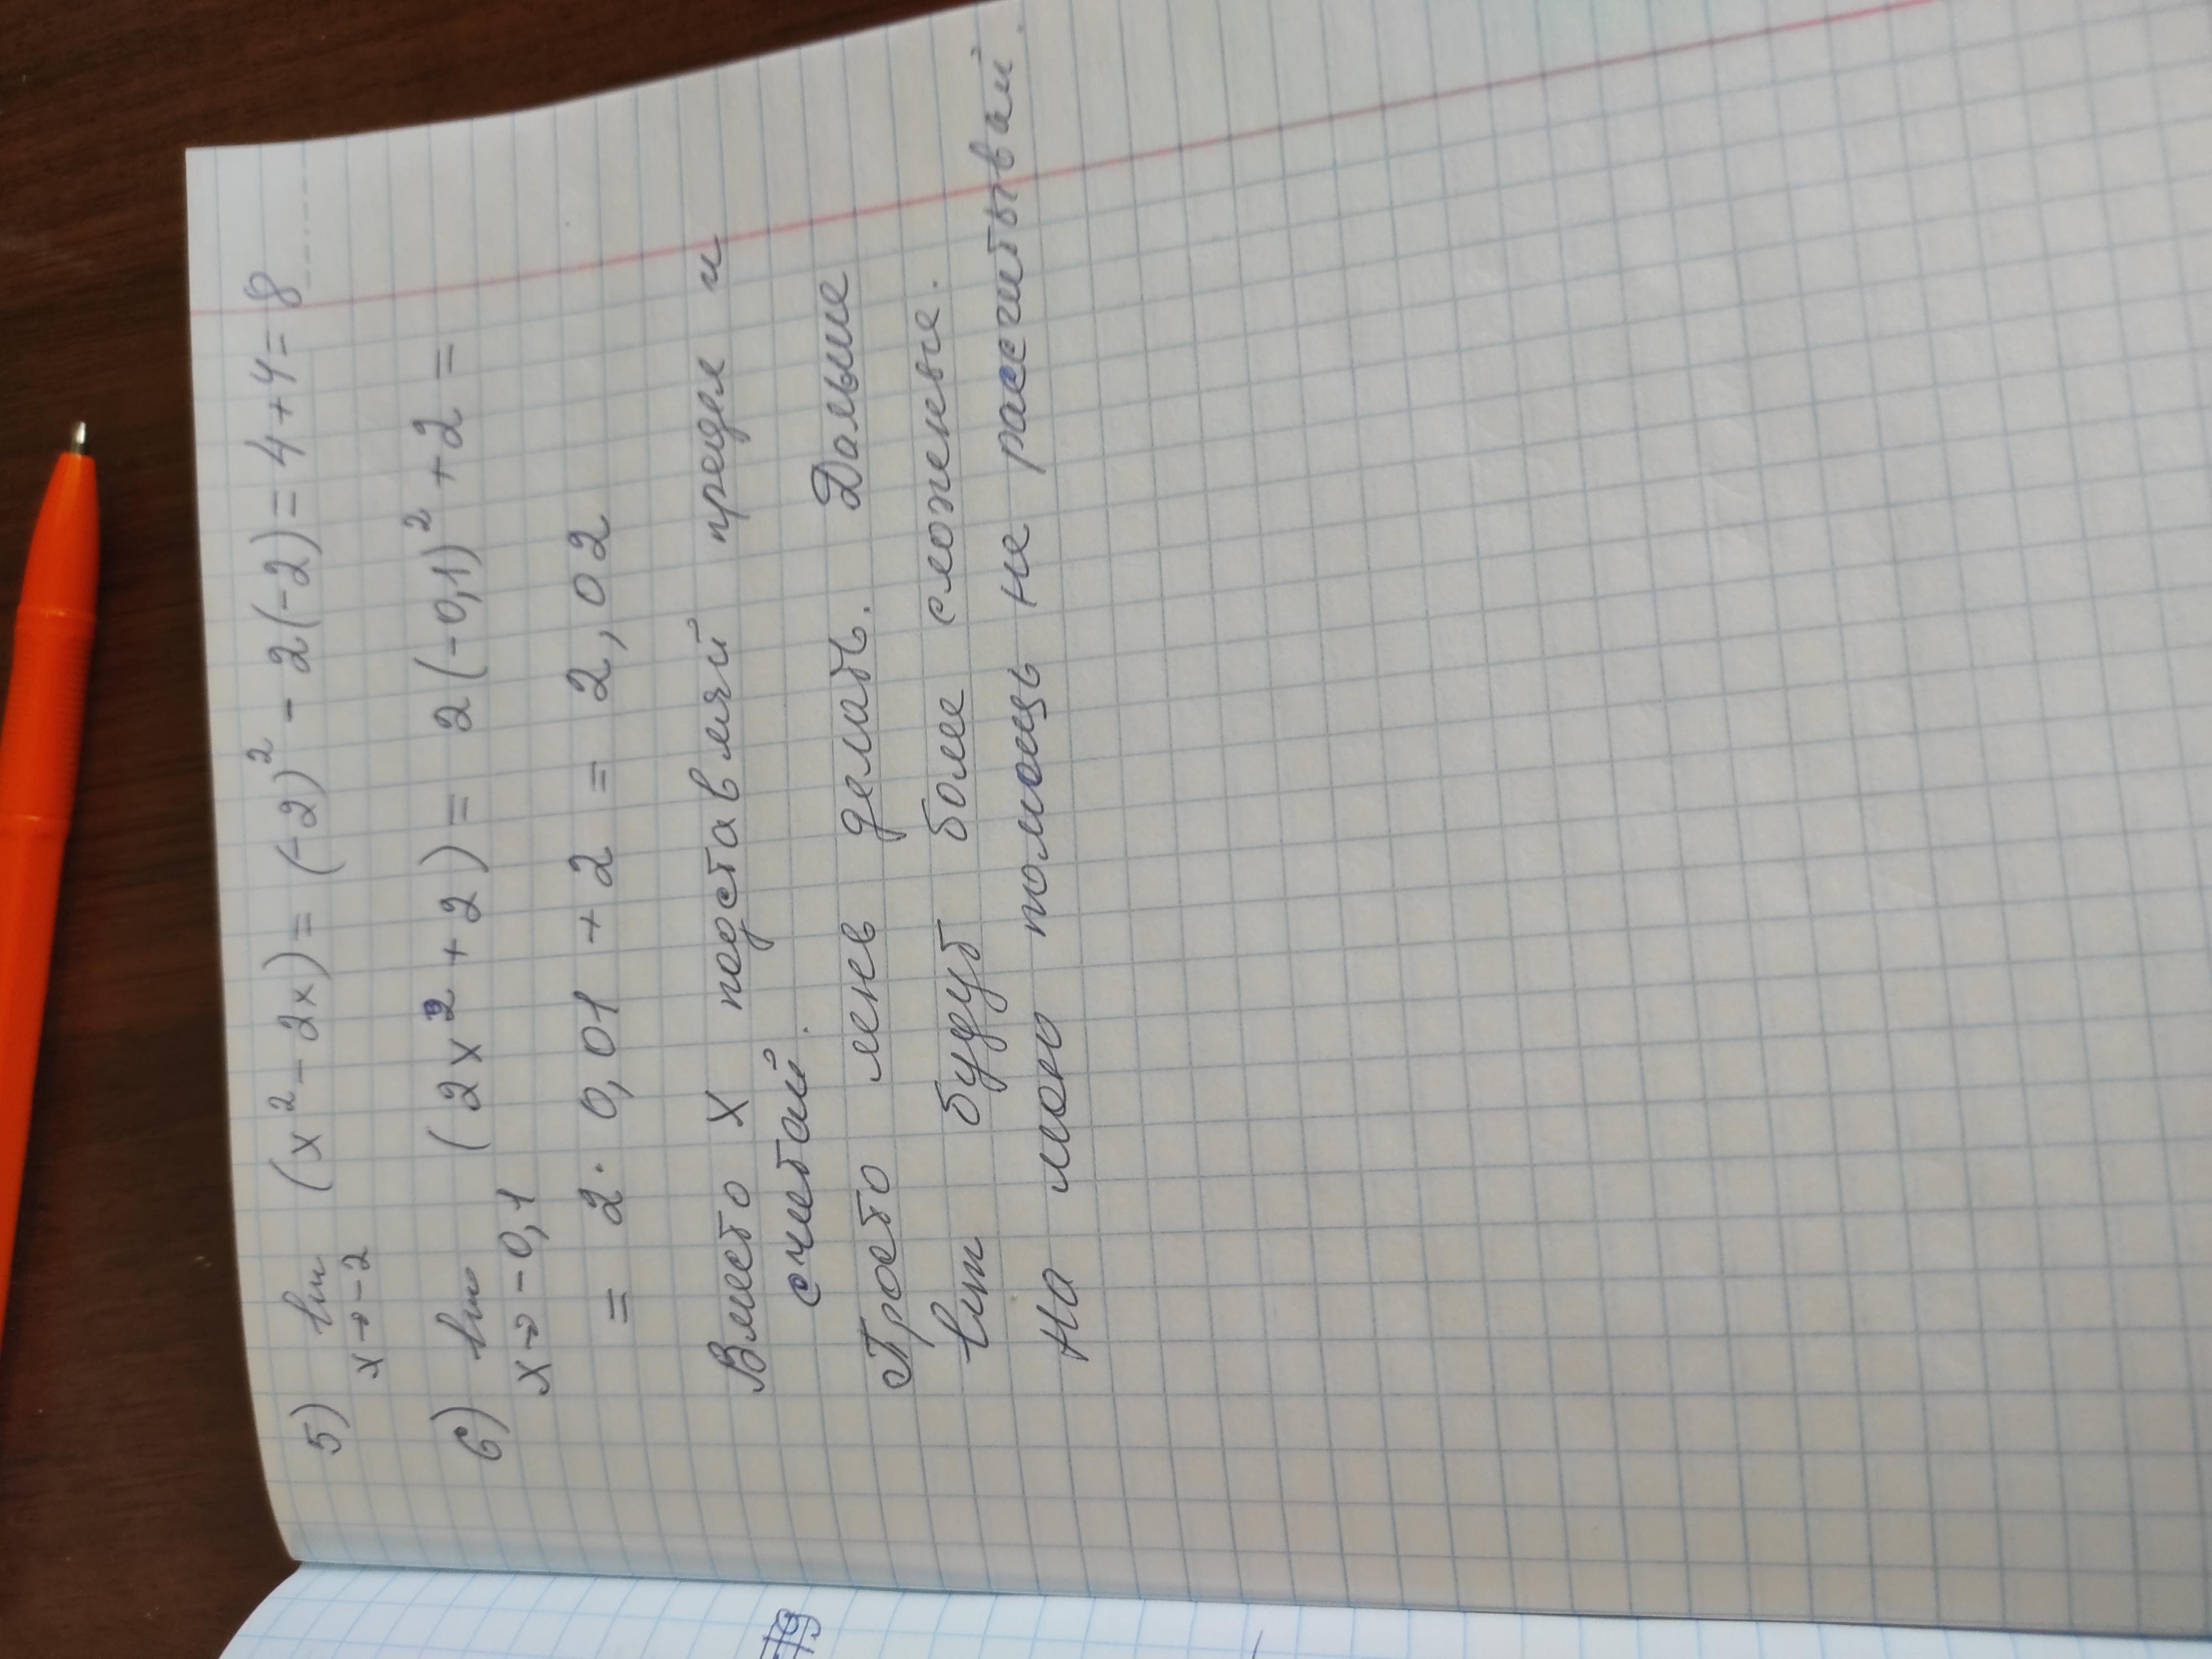 5) lim (x² - 2x) = (-2)² - 2(-2) = 4+4= 8
x→-2
6) lim (2x² + 2) = 2(-0,1)² + 2 =
x→-0,1
= 2 · 0,01 + 2 = 2,02
Вместо x подставляй предел и
считай.
Просто лень делать. Дальше
lim будут более сложные.
На мою помощь не рассчитывай.